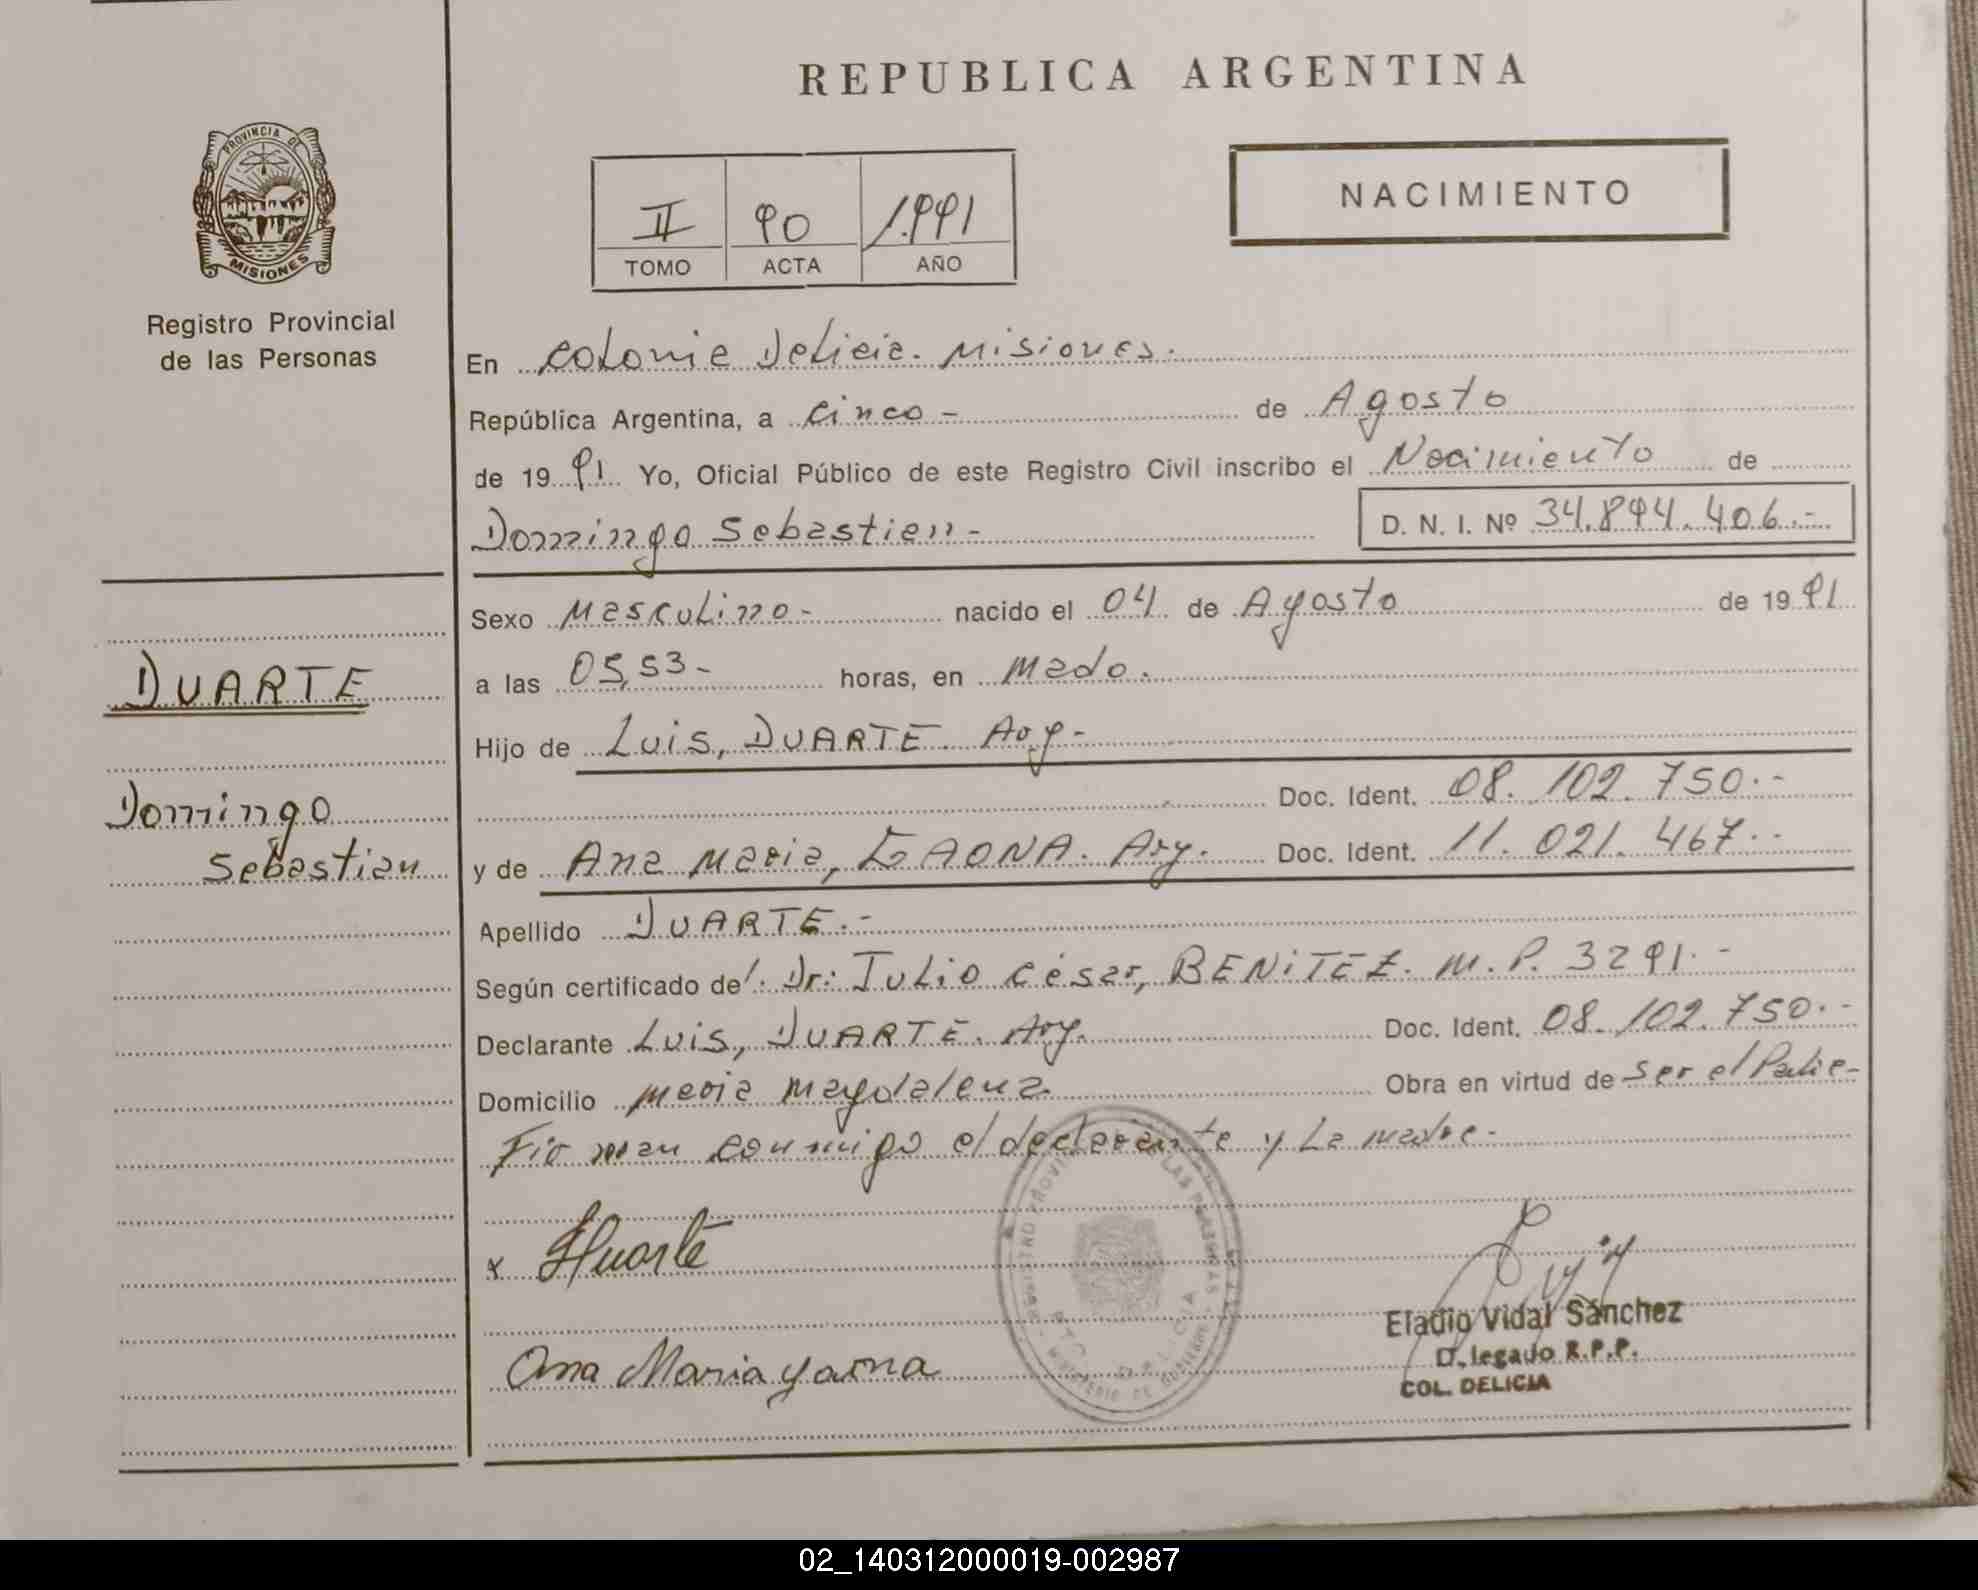 REPUBLICA ARGENTINA
PROVINCIA DE
MISIONES
Registro Provincial
de las Personas
II 90 1.991
TOMO ACTA AÑO
NACIMIENTO
En Colonia Delicia. Misiones.
República Argentina, a cinco - de Agosto
de 19 91 Yo, Oficial Público de este Registro Civil inscribo el Nacimiento de
Domingo Sebastian - D. N. I. Nº 34.894.406.-
Sexo Masculino - nacido el 04 de Agosto de 19 91
a las 05,53 - horas, en Mado.
DUARTE
Hijo de Luis, DUARTE. Arg -
Doc. Ident. 08.102.750.-
Domingo
Sebastian
y de Ana Maria, GAONA. Arg. Doc. Ident. 11.021.467..
Apellido DUARTE.-
Según certificado del. Dr: Julio César, BENiTEZ. M.P. 3291.-
Declarante Luis, DUARTE. Arg. Doc. Ident. 08.102.750.-
Domicilio Maria Magdalena. Obra en virtud de ser el Padre -
Firman conmigo el declarante y La madre -
x Duarte
Ana Maria gaona
Eladio Vidal Sánchez
D,legado R.P.P.
COL. DELICIA
02_140312000019-002987